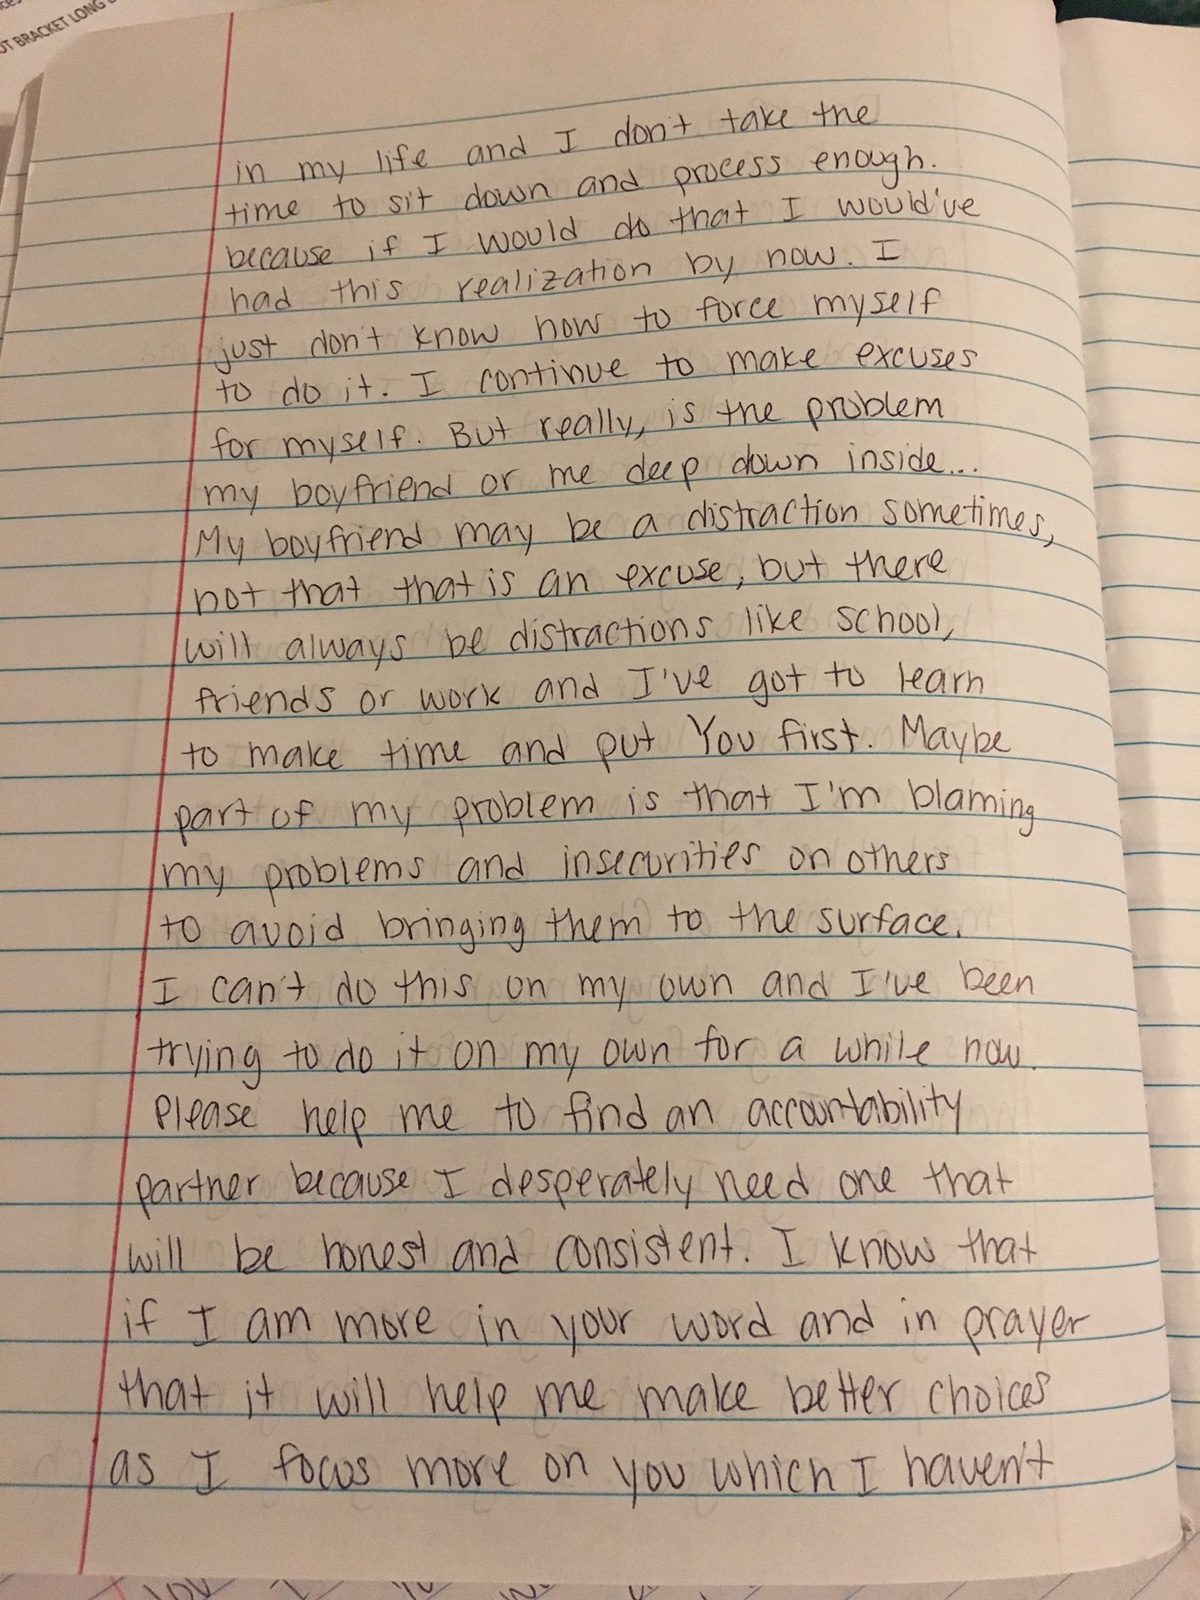 UT BRACKET LONG
in my life and I don't take the
time to sit down and process enough.
because if I would do that I would've
had this realization by now. I
just don't know how to force myself
to do it. I continue to make excuses
for myself. But really, is the problem
my boyfriend or me deep down inside...
My boyfriend may be a distraction sometimes,
not that that is an excuse, but there
will always be distractions like school,
friends or work and I've got to learn
to make time and put You first. Maybe
part of my problem is that I'm blaming
my problems and insecurities on others
to avoid bringing them to the surface.
I can't do this on my own and I've been
trying to do it on my own for a while now.
Please help me to find an accountability
partner because I desperately need one that
will be honest and consistent. I know that
if I am more in your word and in prayer
that it will help me make better choices
as I focus more on you which I haven't